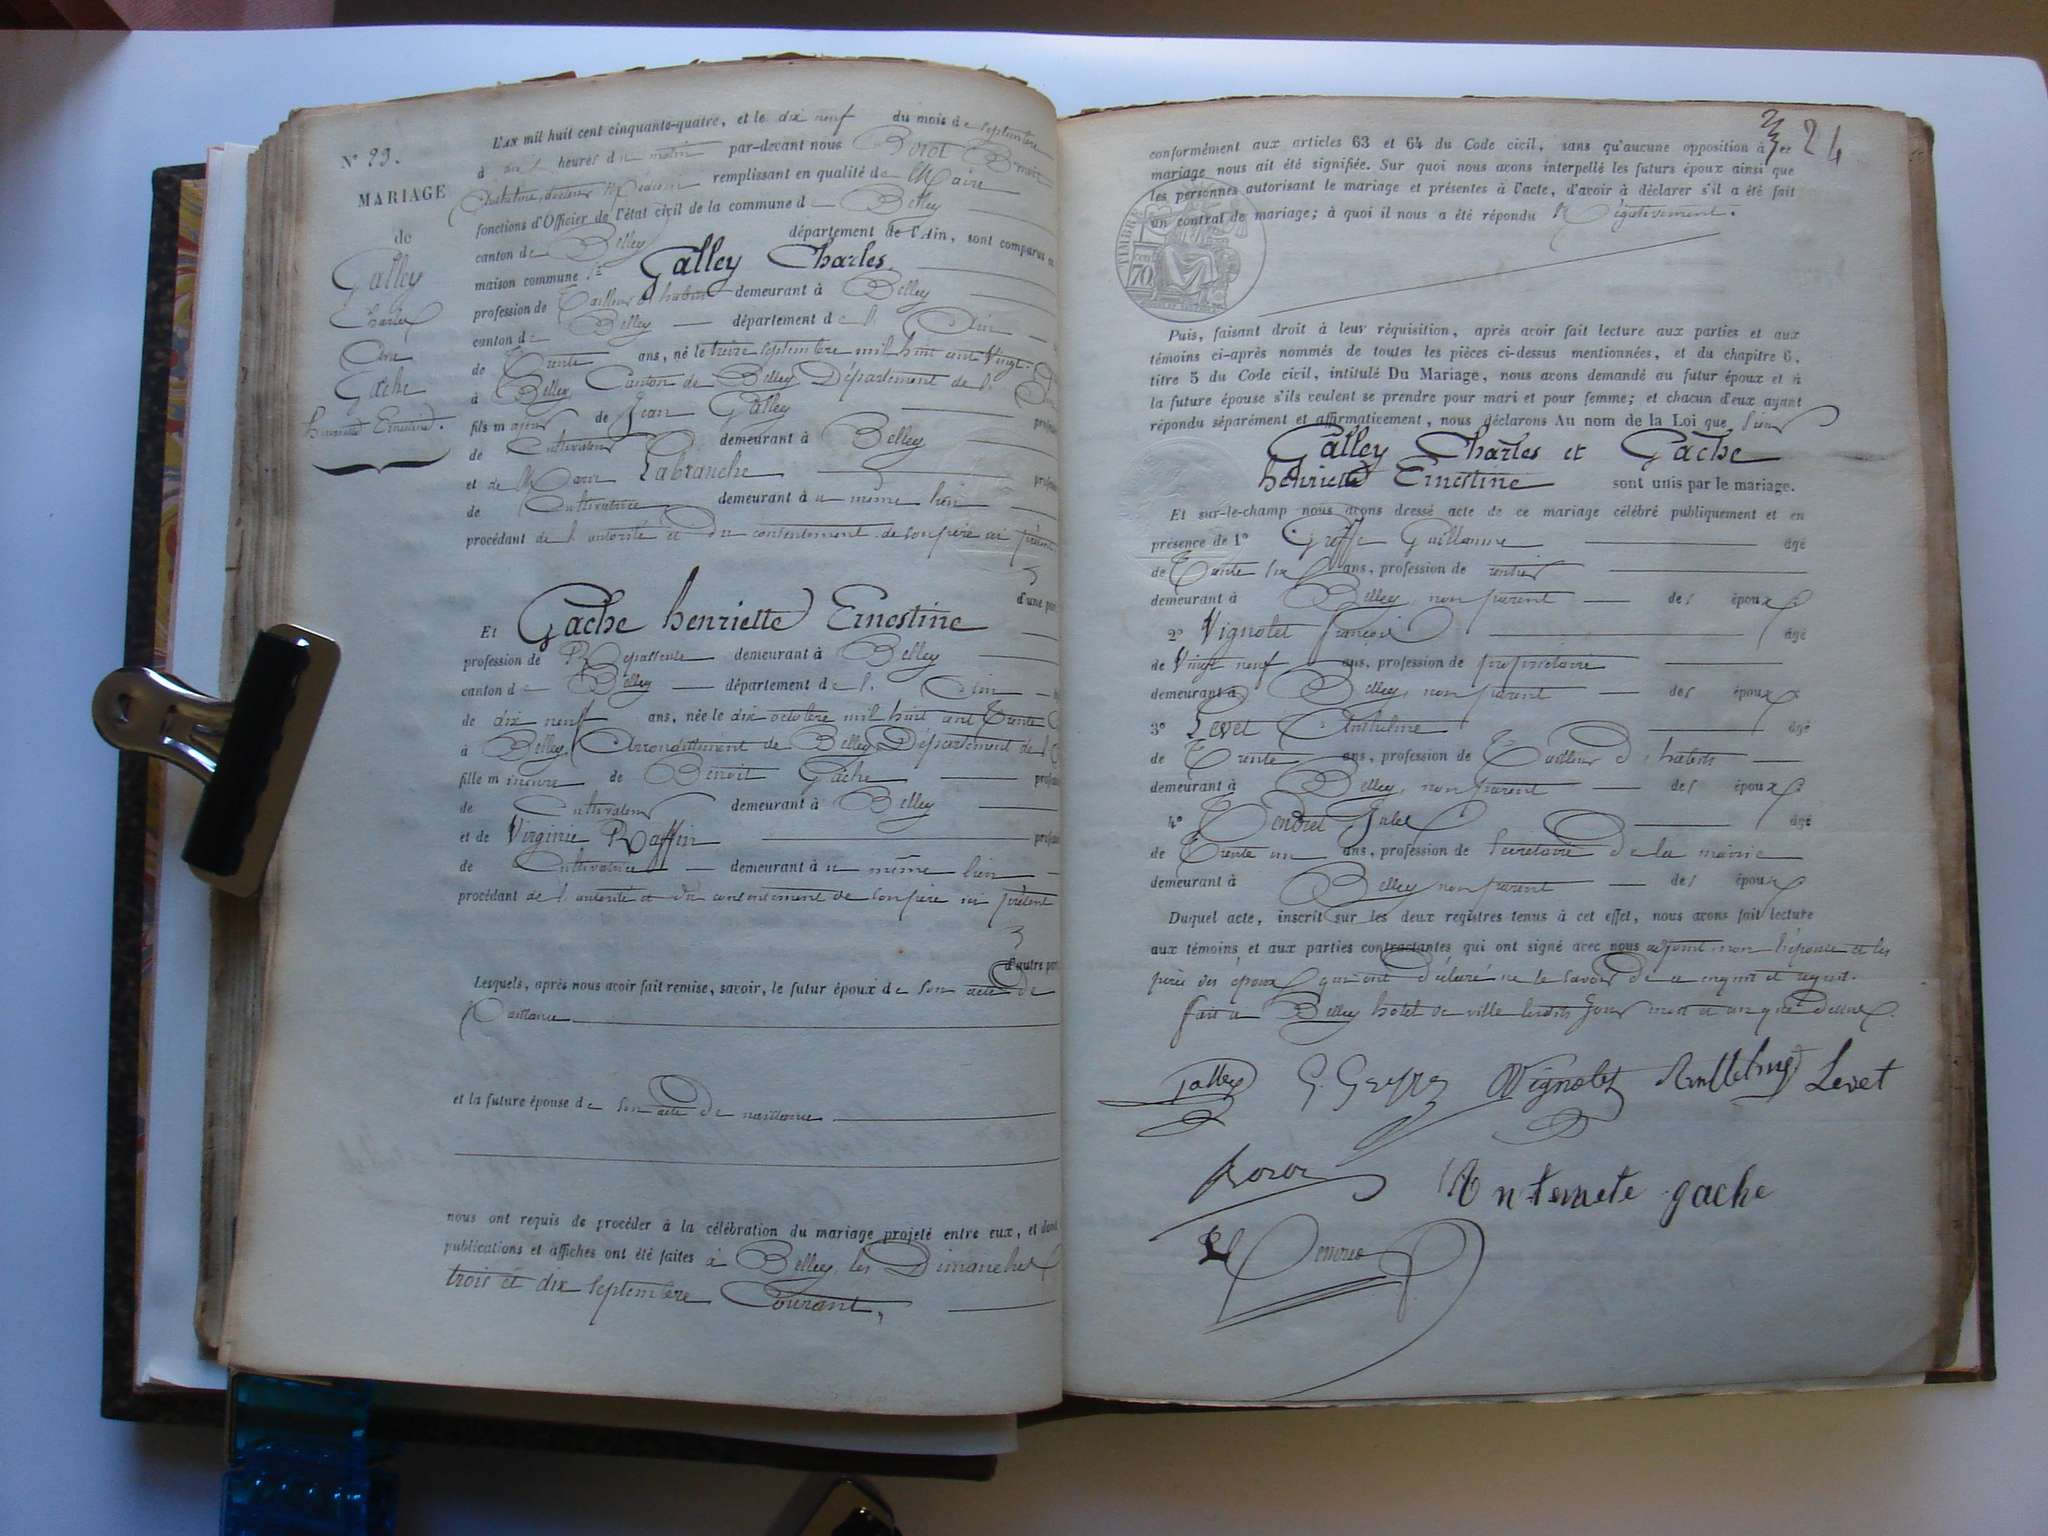 N° 23.
MARIAGE
de
Galley
Charles
Et
Gache
henriette Ernestine.
L'AN mil huit cent cinquante-quatre, et le dix neuf du mois de septembre
à heures du matin par-devant nous Benoit
Anthelme, docteur Médecin remplissant en qualité de Maire
fonctions d'Officier de l'état civil de la commune de Belley
canton de Belley département de l'Ain, sont comparus en
maison commune Galley Charles
profession de Tailleur d'habits demeurant à Belley
canton de Belley département de l'Ain
de Trente ans, né le treize septembre mil huit cent Vingt
à Belley Canton de Belley Département de l'
fils majeur de Jean Galley
de Cultivateur demeurant à Belley
et de Marie Labranche
de Cultivatrice demeurant au même lieu
procédant de l'autorité et du consentement de son père ici présent
d'une part
Et Gache henriette Ernestine
profession de Repasseuse demeurant à Belley
canton de Belley département de l'Ain
de dix neuf ans, née le dix octobre mil huit cent Trente
à Belley Arrondissement de Belley Département de l'
fille mineure de Benoit Gache
de Cultivateur demeurant à Belley
et de Virginie Raffin
de Cultivatrice demeurant au même lieu
procédant de l'autorité et du consentement de son père ici présent
d'autre part
Lesquels, après nous avoir fait remise, savoir, le futur époux de son acte de
Naissance
et la future épouse de son acte de naissance
nous ont requis de procéder à la célébration du mariage projeté entre eux, et dont
publications et affiches ont été faites à Belley, les Dimanches
trois et dix septembre Courant,
24
conformément aux articles 63 et 64 du Code civil, sans qu'aucune opposition à ce
mariage nous ait été signifiée. Sur quoi nous avons interpellé les futurs époux ainsi que
les personnes autorisant le mariage et présentes à l'acte, d'avoir à déclarer s'il a été fait
un contrat de mariage; à quoi il nous a été répondu Négativement.
TIMBRE
70
Puis, faisant droit à leur réquisition, après avoir fait lecture aux parties et aux
témoins ci-après nommés de toutes les pièces ci-dessus mentionnées, et du chapitre 6,
titre 5 du Code civil, intitulé Du Mariage, nous avons demandé au futur époux et à
la future épouse s'ils veulent se prendre pour mari et pour femme; et chacun d'eux ayant
répondu séparément et affirmativement, nous déclarons Au nom de la Loi que
Galley Charles et Gache
henriette Ernestine sont unis par le mariage.
Et sur-le-champ nous avons dressé acte de ce mariage célébré publiquement et en
présence de 1° Greppe Guillaume âgé
de Trente six ans, profession de rentier
demeurant à Belley, non parent des époux
2° Vignolet françois âgé
de Vingt neuf ans, profession de propriétaire
demeurant à Belley, non parent des époux
3° Levet Anthelme âgé
de Trente ans, profession de Tailleur d'habits
demeurant à Belley, non parent des époux
4° Tendret Jules âgé
de Trente un ans, profession de Secrétaire de la mairie
demeurant à Belley non parent des époux
Duquel acte, inscrit sur les deux registres tenus à cet effet, nous avons fait lecture
aux témoins et aux parties contractantes qui ont signé avec nous non l'épouse et les
pères des époux qui ont déclaré ne le savoir de ce enquis et requis.
fait à Belley hotel de ville lesdits Jour mois et an que dessus.
Galley G. Greppe Vignolet Levet
gache